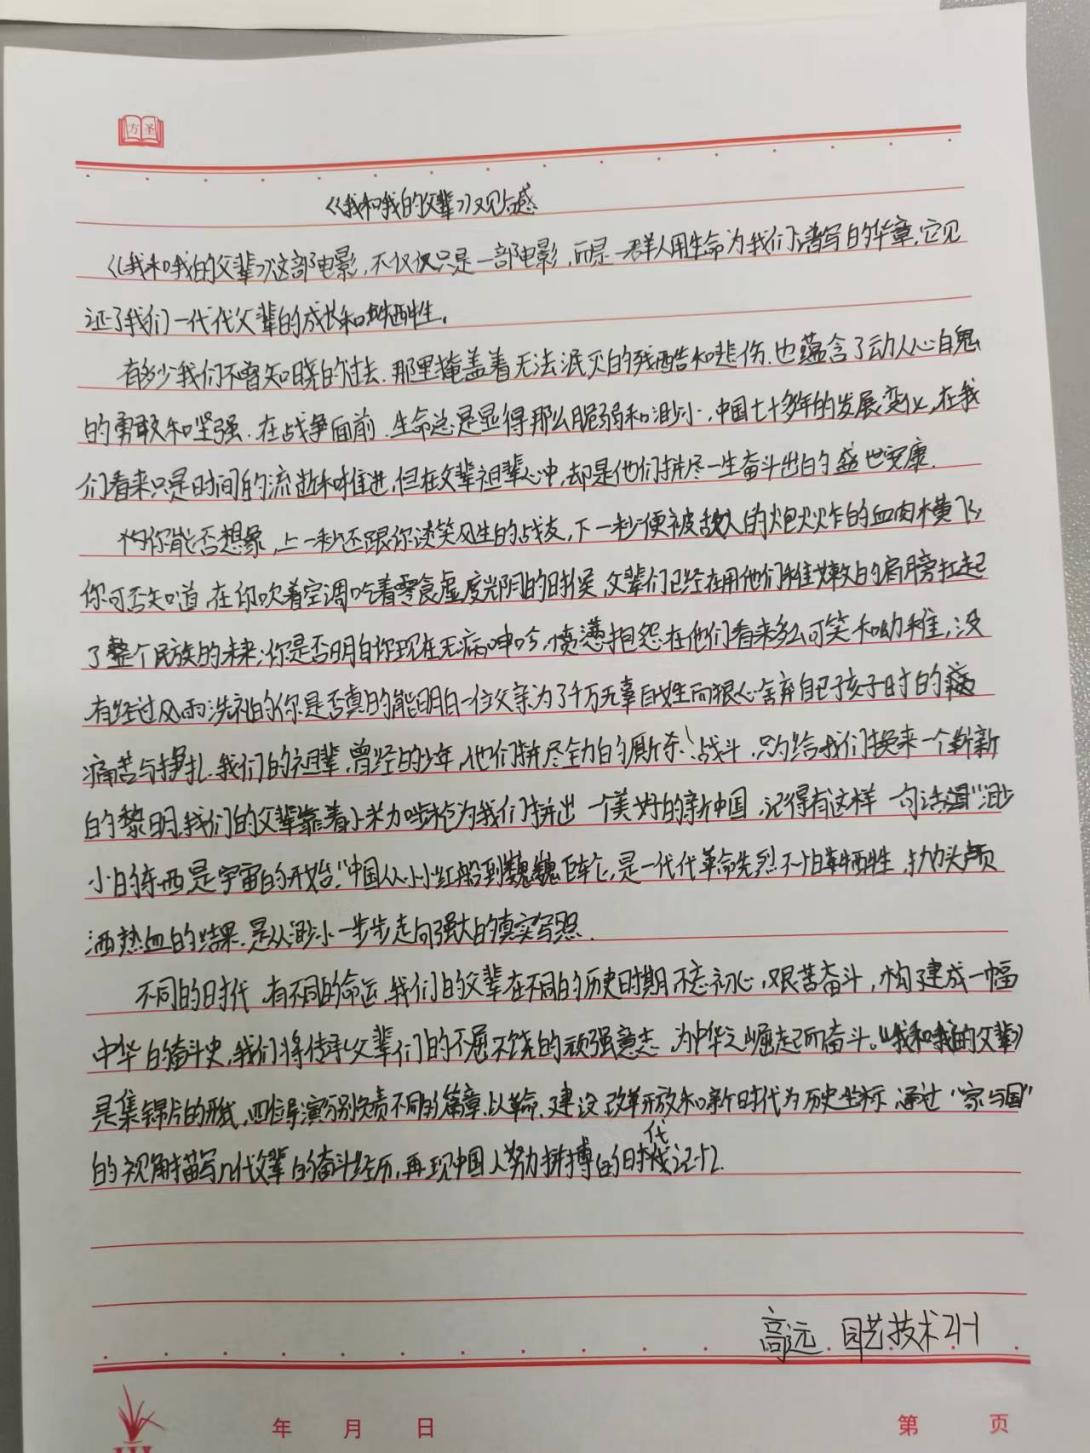 方圣
《我和我的父辈》观后感
《我和我的父辈》这部电影,不仅仅只是一部电影,而是一群人用生命为我们谱写的华章,它见
证了我们一代代父辈的成长和牺牲。
有多少我们不曾知晓的过去,那里掩盖着无法泯灭的残酷和悲伤,也蕴含了动人心自鬼
的勇敢和坚强.在战争面前,生命总是显得那么脆弱和渺小.中国七十多年的发展变化,在我
们看来只是时间的流逝和推进,但在父辈祖辈心中,却是他们拼尽一生奋斗出的盛世安康.
你能否想象,上一秒还跟你谈笑风生的战友,下一秒便被敌人的炮火炸的血肉横飞
你可否知道,在你吹着空调吃着零食虚度光阴的时候,父辈们已经在用他们稚嫩的肩膀扛起
了整个民族的未来;你是否明白你现在无病呻吟,愤懑抱怨在他们看来多么可笑和幼稚,没
有经过风雨洗礼的你是否真的能明白一位父亲为了千万无辜百姓而狠心舍弃自己孩子时的
痛苦与挣扎.我们的祖辈,曾经的少年,他们拼尽全力的厮杀、战斗,只为给我们换来一个崭新
的黎明,我们的父辈靠着小米加步枪为我们拼出一个美好的新中国,记得有这样一句话"渺
小的东西是宇宙的开始."中国从小小红船到巍巍巨轮,是一代代革命先烈不怕牺牲,抛头颅
洒热血的结果.是从渺小一步步走向强大的真实写照.
不同的时代,有不同的命运,我们的父辈在不同的历史时期不忘初心,艰苦奋斗,构建成一幅
中华的奋斗史,我们将传承父辈们的不屈不饶的顽强意志,为中华之崛起而奋斗。《我和我的父辈》
是集锦片的形式,四位导演分别负责不同的篇章,以革命,建设,改革开放和新时代为历史坐标,通过"家与国"
的视角描写几代父辈的奋斗经历,再现中国人努力拼搏的时代记忆.
高远 园艺技术21-1
年 月 日
第 页